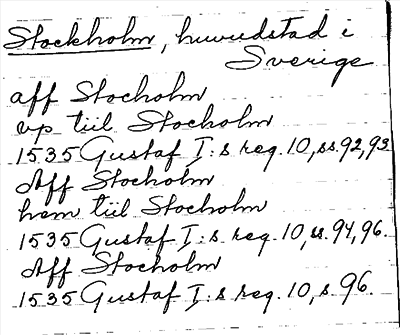 Stockholm, huvudstad i
Sverige
aff Stocholm
vp tiil Stocholm
1535 Gustaf I:s reg. 10, ss. 92, 93.
Aff Stocholm
hem tiil Stocholm
1535 Gustaf I:s reg. 10, ss. 94, 96.
Aff Stocholm
1535 Gustaf I:s reg. 10, s. 96.